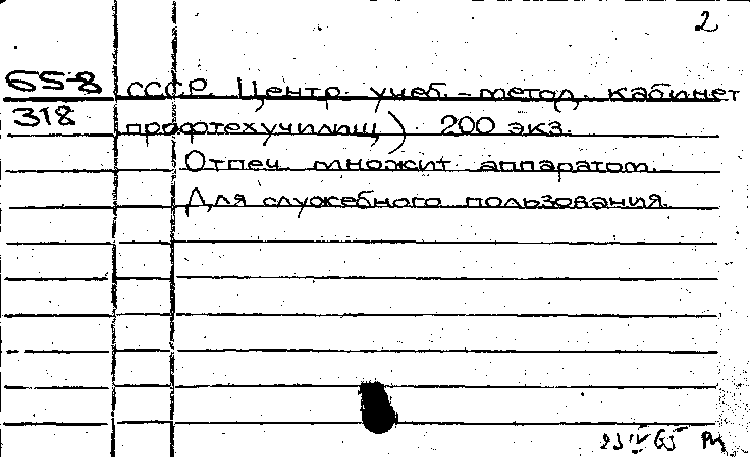 2
65-8 СССР. Центр. учеб.-метод. кабинет
318 профтехучилищ). 200 экз.
Отпеч. множит. аппаратом.
Для служебного пользования.
23 IV 65